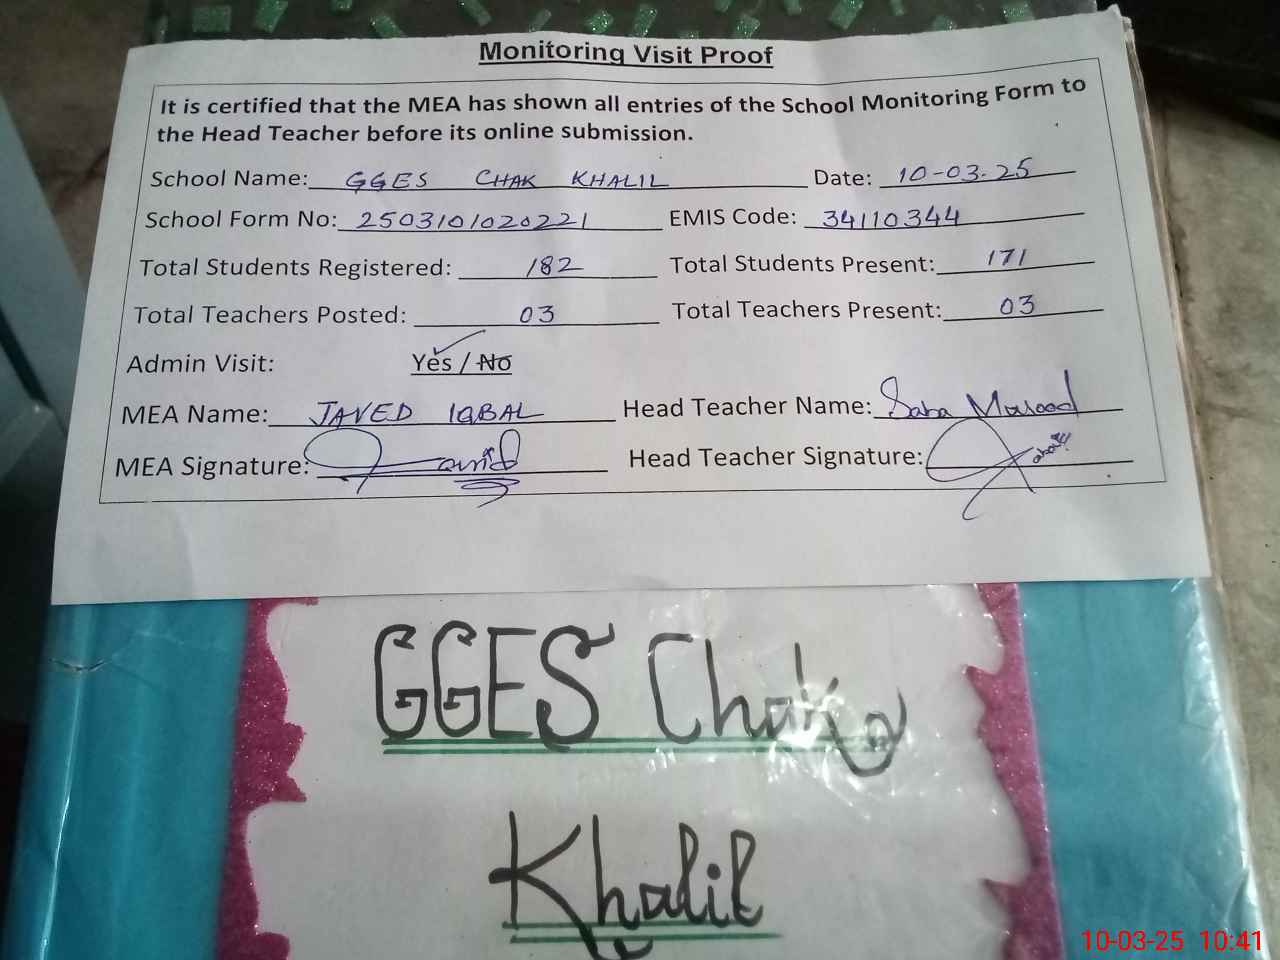 Monitoring Visit Proof
It is certified that the MEA has shown all entries of the School Monitoring Form to
the Head Teacher before its online submission.
School Name: GGES CHAK KHALIL Date: 10-03-25
School Form No: 2503101020221 EMIS Code: 34110344
Total Students Registered: 182 Total Students Present: 171
Total Teachers Posted: 03 Total Teachers Present: 03
Admin Visit: Yes / No
MEA Name: JAVED IQBAL Head Teacher Name: Saba Masood
MEA Signature: Javid Head Teacher Signature:
GGES Chak
Khalil
10-03-25 10:41